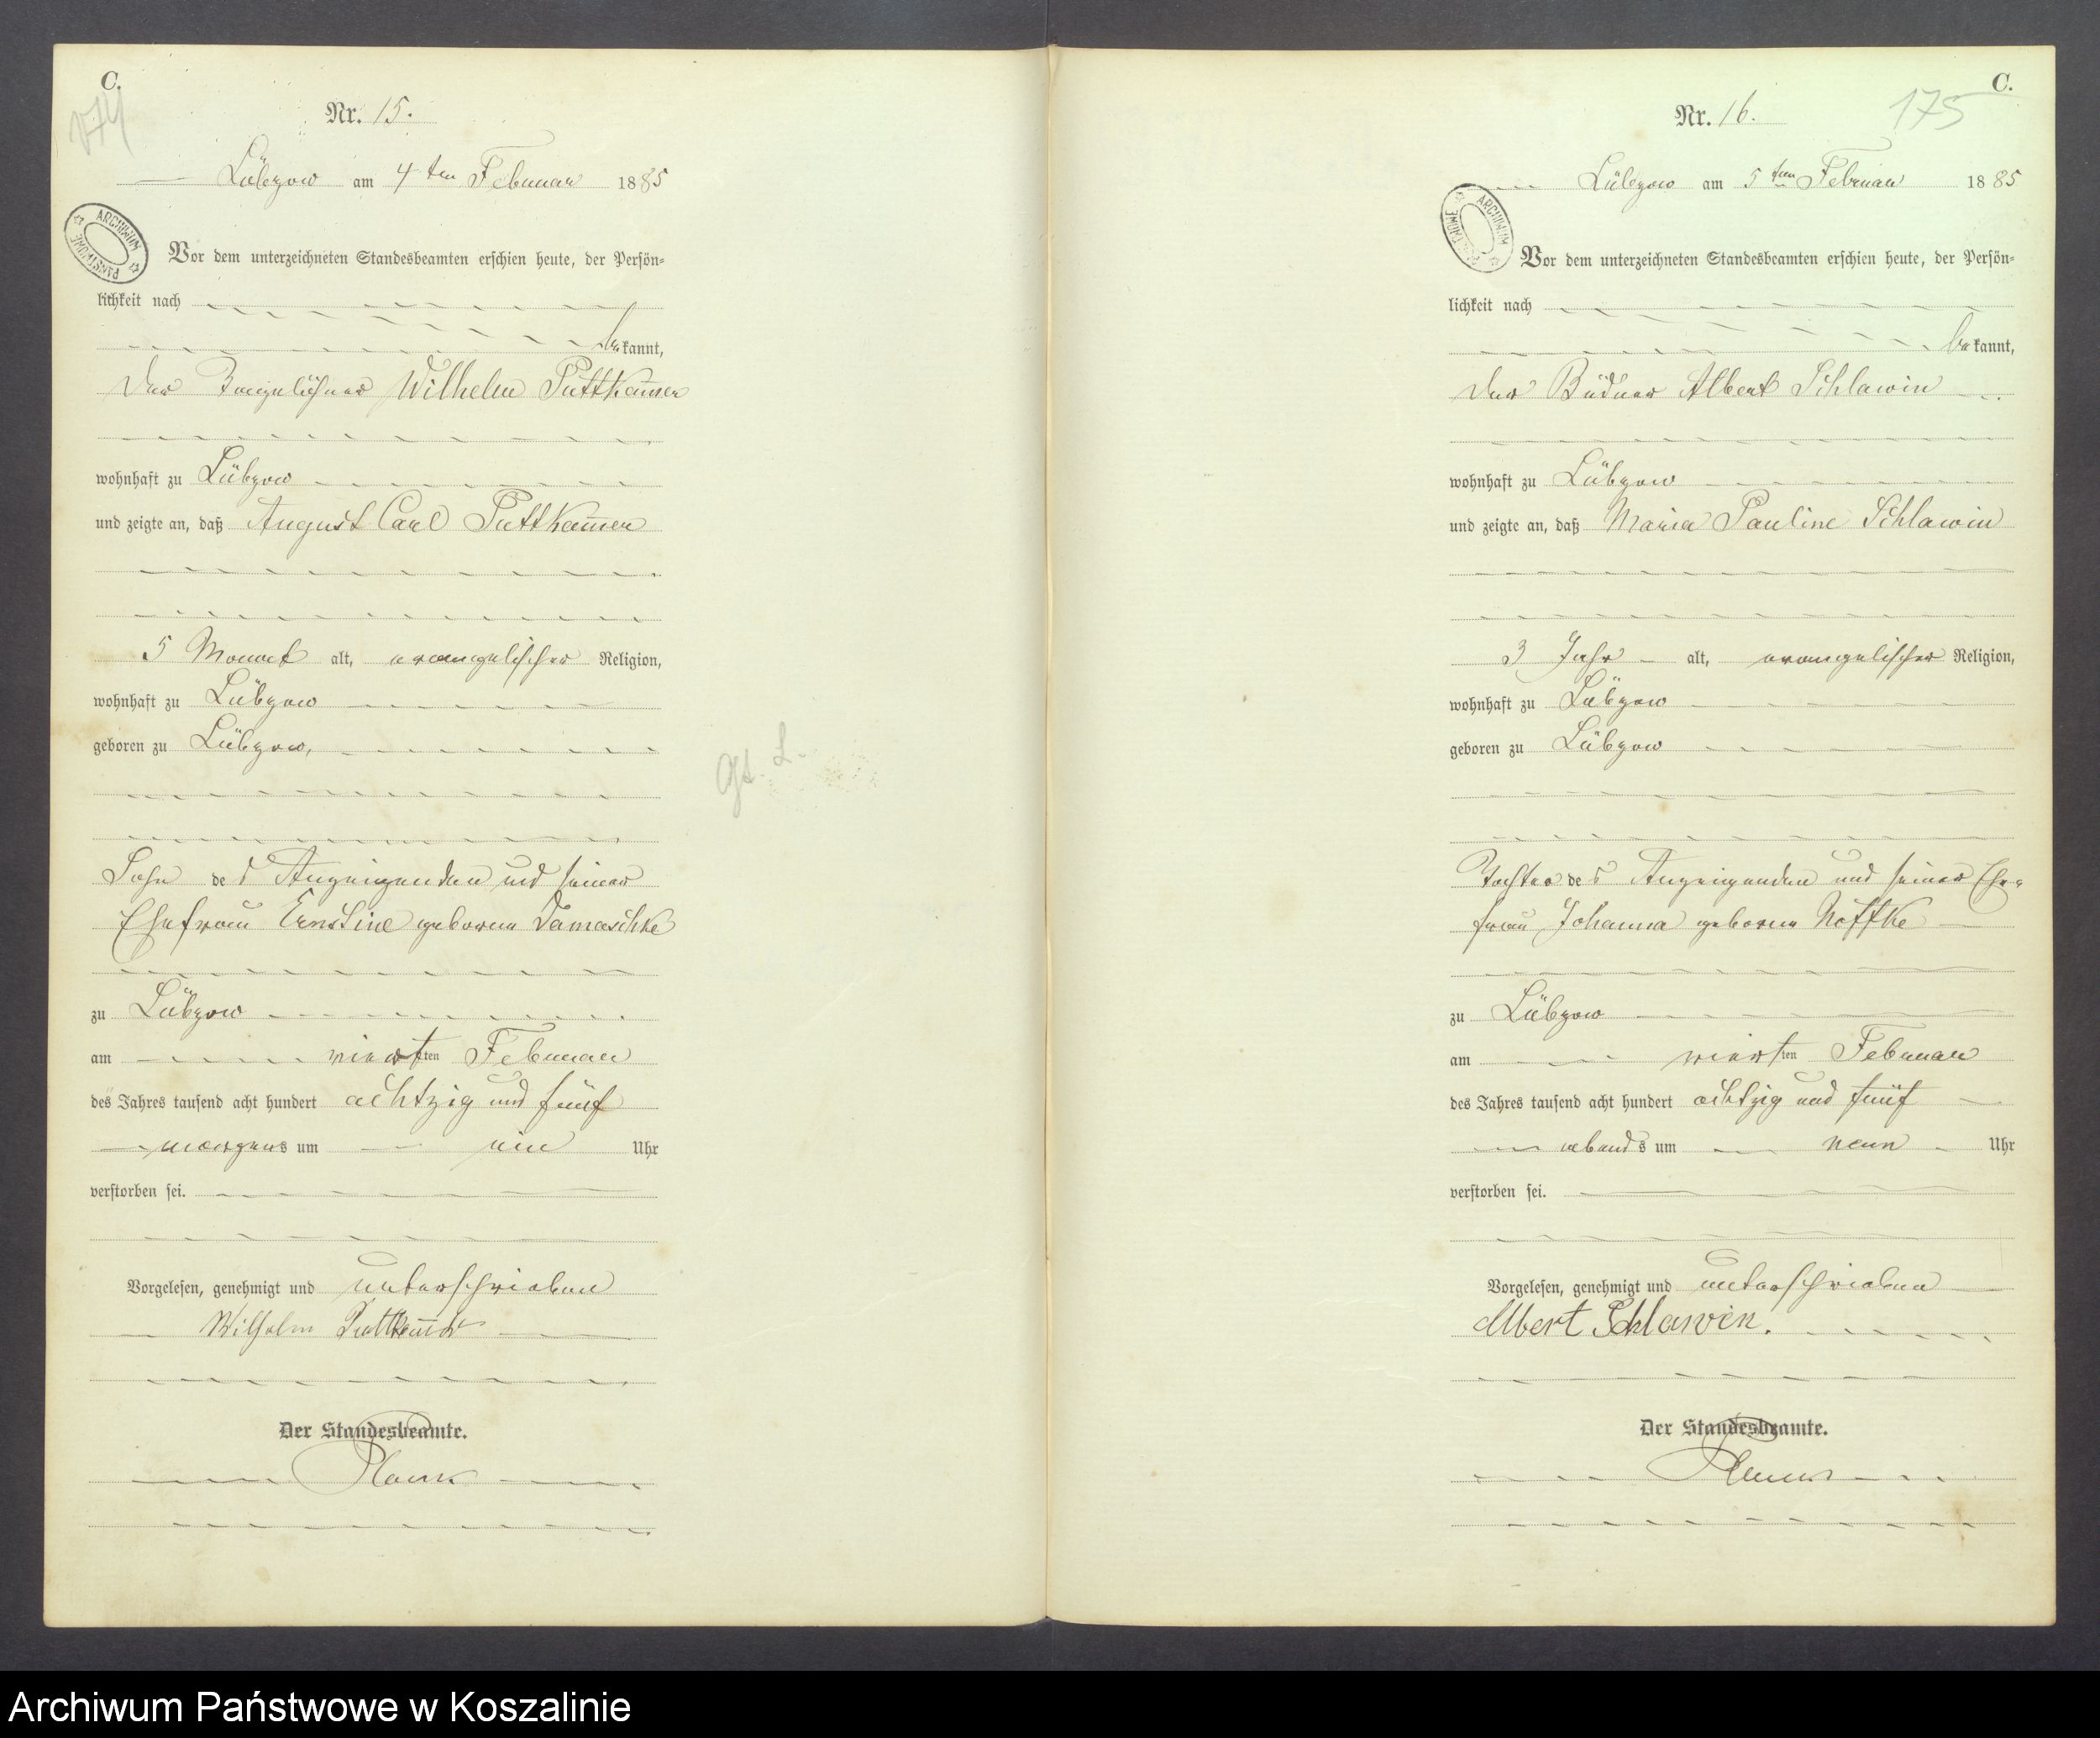 C.
174
Nr. 15.
Lübzow am 4ten Februar 1885
ARCHIWUM PAŃSTWOWE
Vor dem unterzeichneten Standesbeamten erschien heute, der Persön=
lichkeit nach
bekannt,
der Tagelöhner Wilhelm Puttkam̅er
wohnhaft zu Lübzow
und zeigte an, daß August Carl Puttkam̅er
5 Monat alt, evangelischer Religion,
wohnhaft zu Lübzow
geboren zu Lübzow,
Sohn des Anzeigenden und seiner
Ehefrau Ernstine geborne Damaschke
zu Lübzow
am vierten Februar
des Jahres tausend acht hundert achtzig und fünf
morgens um ein Uhr
verstorben sei.
Vorgelesen, genehmigt und unterschrieben
Wilhelm Puttkam̅er
Der Standesbeamte.
C.
175
Nr. 16.
Lübzow am 5ten Februar 1885
ARCHIWUM PAŃSTWOWE
Vor dem unterzeichneten Standesbeamten erschien heute, der Persön=
lichkeit nach
bekannt,
der Büdner Albert Schlawin
wohnhaft zu Lübzow
und zeigte an, daß Maria Pauline Schlawin
3 Jahr alt, evangelischer Religion,
wohnhaft zu Lübzow
geboren zu Lübzow
Tochter des Anzeigenden und seiner Ehe=
frau Johanna geborne Noffke
zu Lübzow
am vierten Februar
des Jahres tausend acht hundert achtzig und fünf
abends um neun Uhr
verstorben sei.
Vorgelesen, genehmigt und unterschrieben
Albert Schlawin.
Der Standesbeamte.
Archiwum Państwowe w Koszalinie